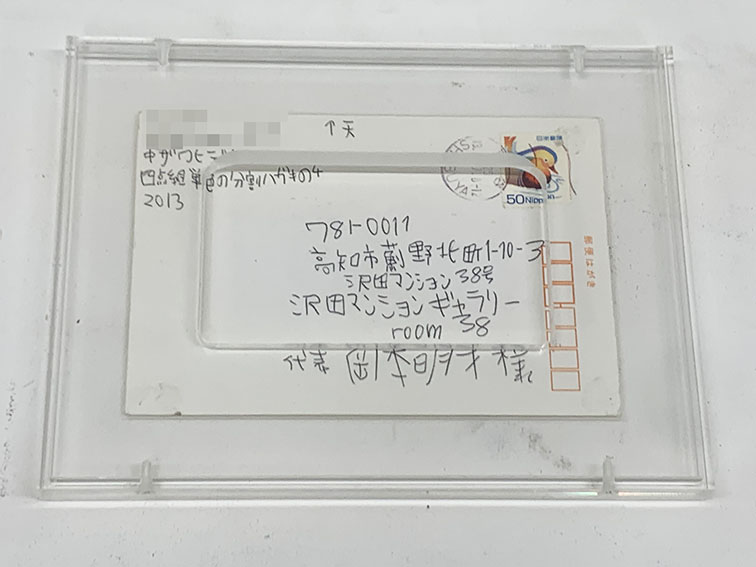 ↑天
中ザワヒデキ
四点組単色の分割ハガキの4
2013
日本郵便
50 NIPPON
郵便はがき
781-0011
高知市薊野北町1-10-3
沢田マンション38号
沢田マンションギャラリー
room 38
代表 岡本明才 様